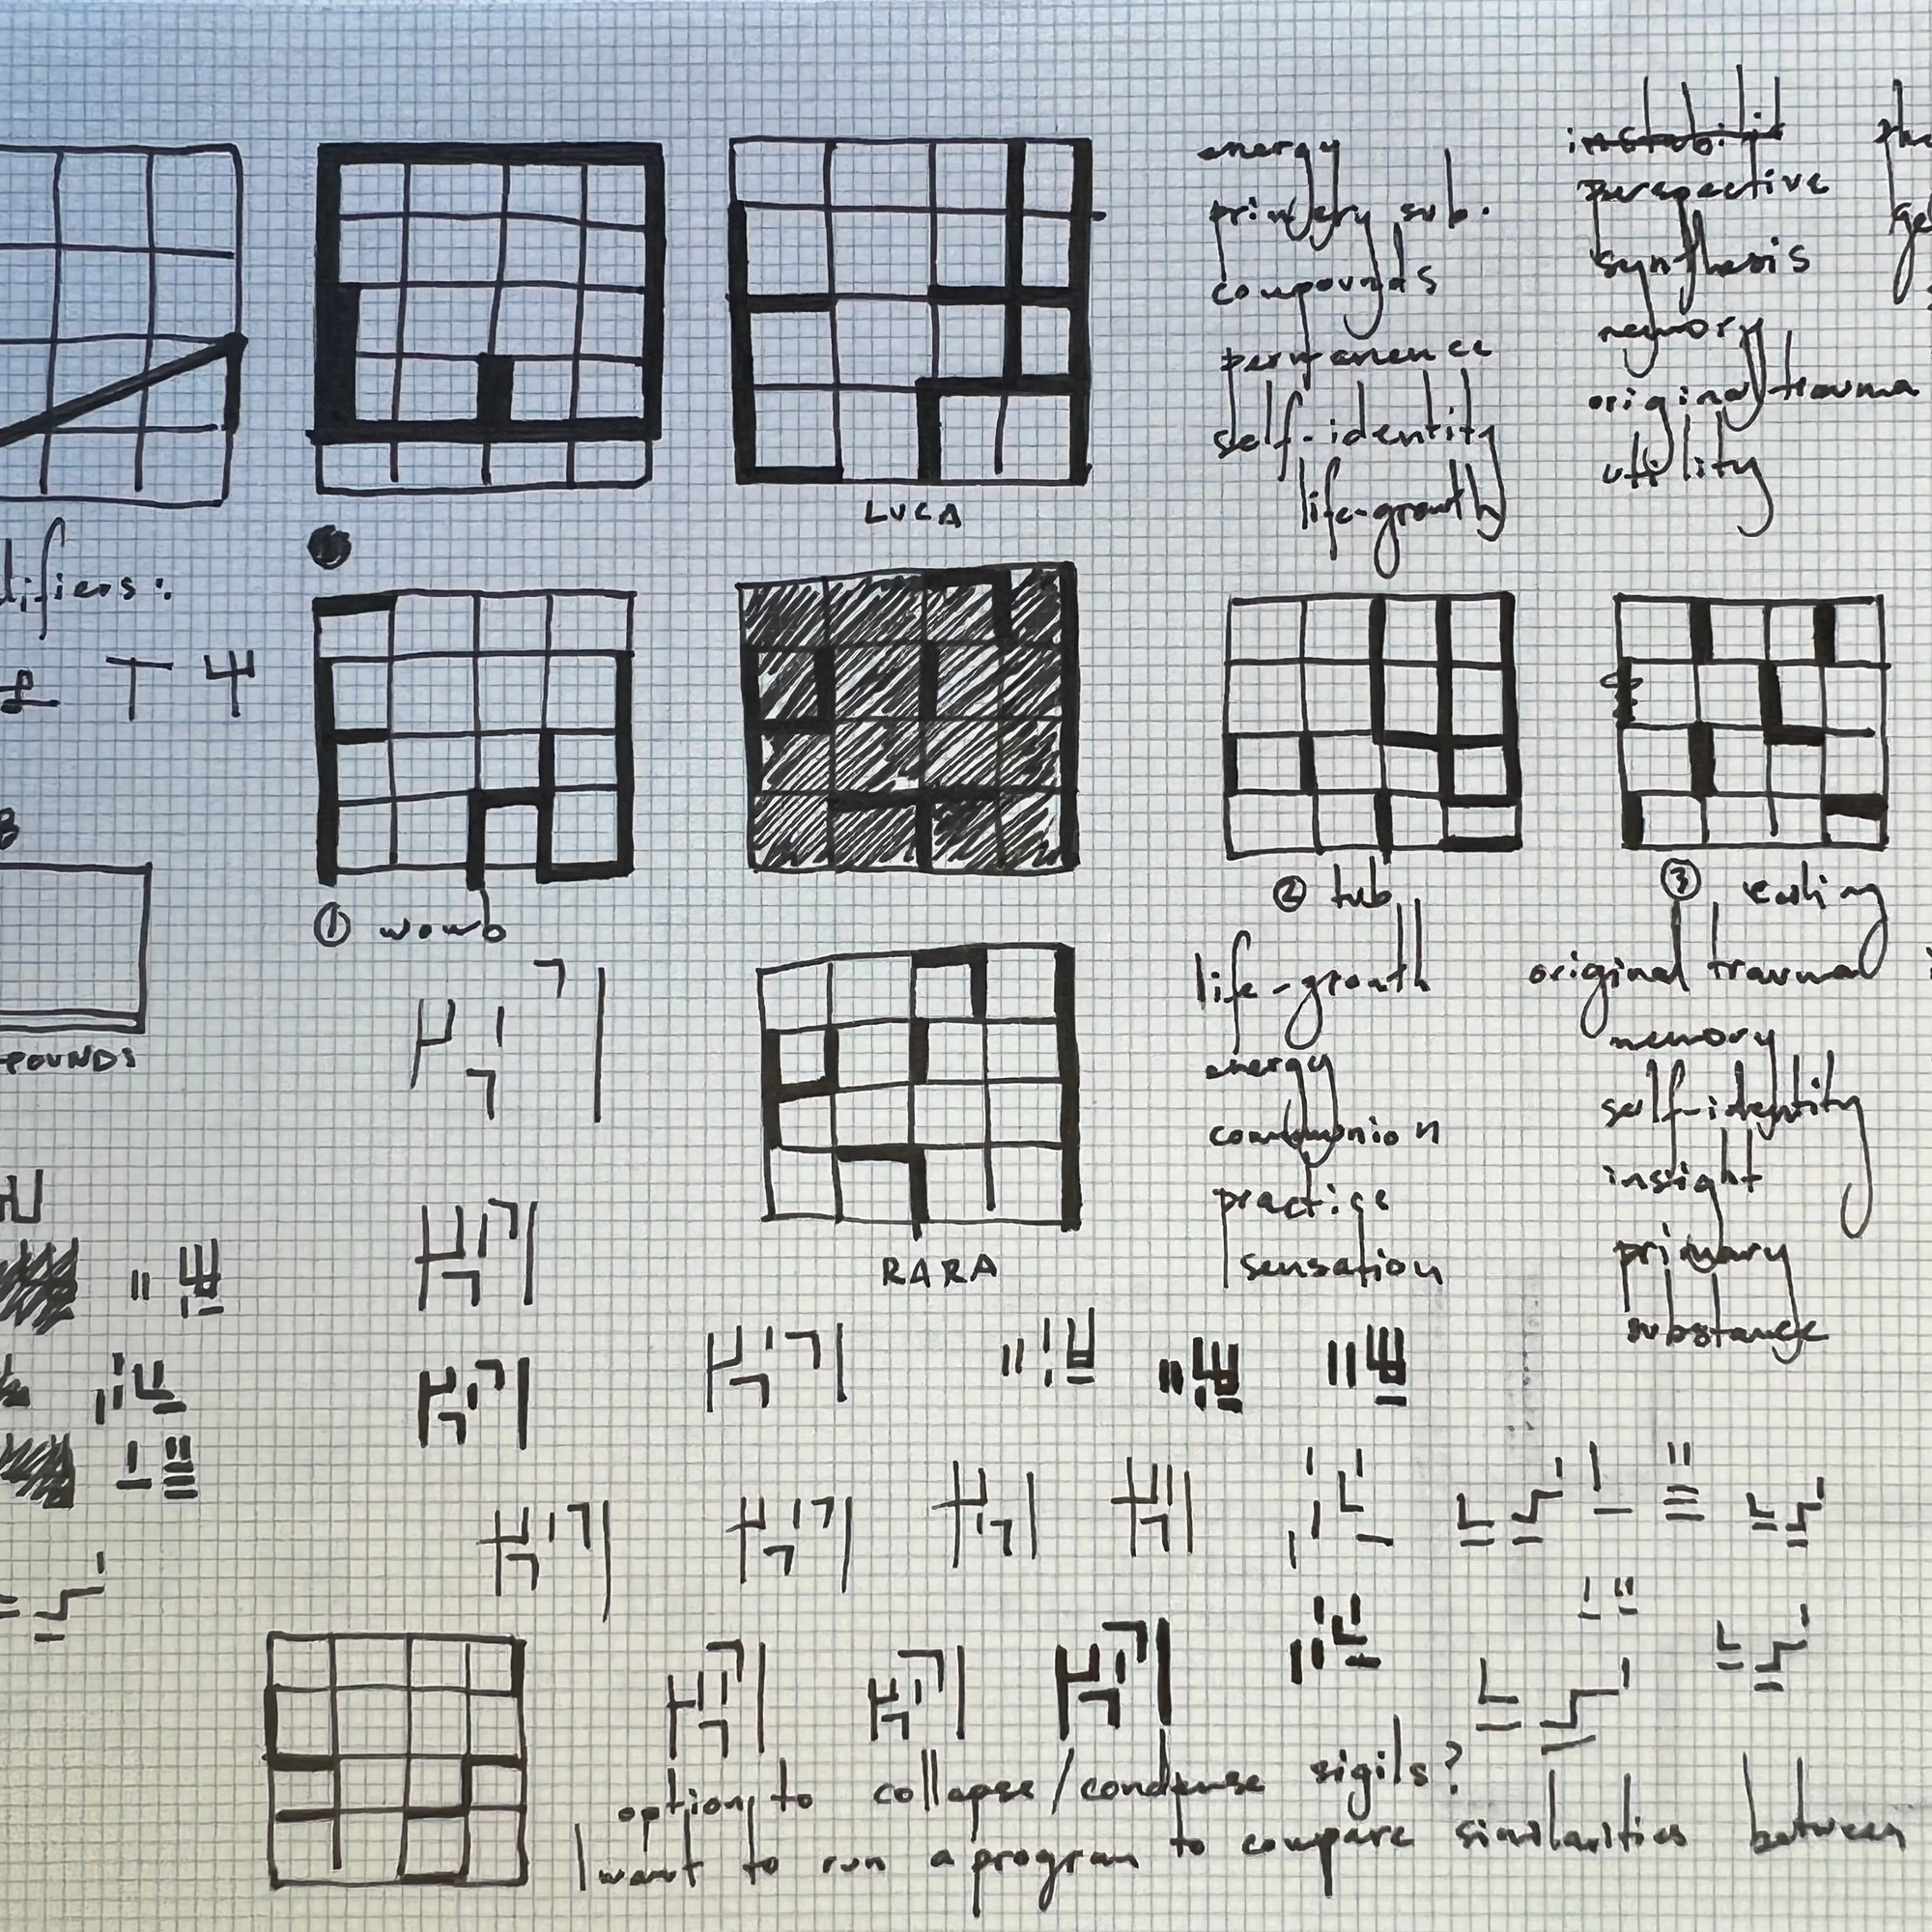 energy
primary sub.
compounds
permanence
self-identity
life-growth
instabilit
perspective
synthesis
memory
original trauma
utility
LUCA
difiers:
① womb
② tub
life-growth
energy
communion
practice
sensation
③
original trauma
memory
self-identity
insight
primary
substance
POUNDS
RARA
option to collapse/condense sigils?
I want to run a program to compare similarities between